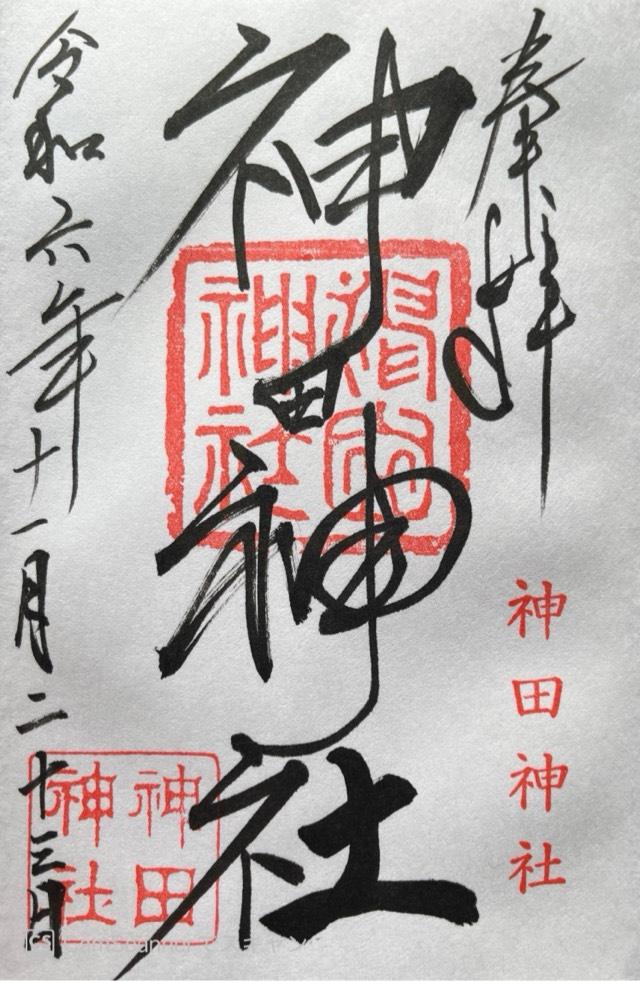 奉拝
神田神社
神田神社
神田神社
令和六年十一月二十三日